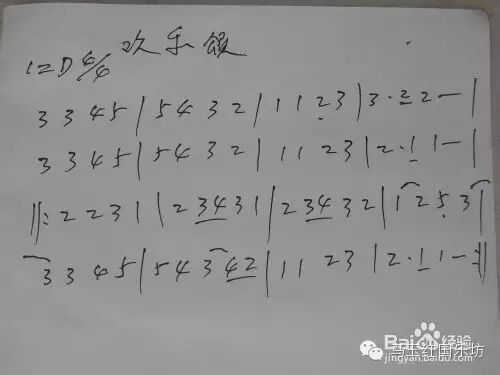 欢乐颂
1=D 4/4
3 3 4 5 | 5 4 3 2 | 1 1 2 3 | 3 · 2 2 — |
3 3 4 5 | 5 4 3 2 | 1 1 2 3 | 2 · 1 1 — |
‖: 2 2 3 1 | 2 3 4 3 1 | 2 3 4 3 2 | 1 2 5 3 |
3 3 4 5 | 5 4 3 4 2 | 1 1 2 3 | 2 · 1 1 — :‖
Baidu 经验
jingyan.baidu.com
马玉红国乐坊